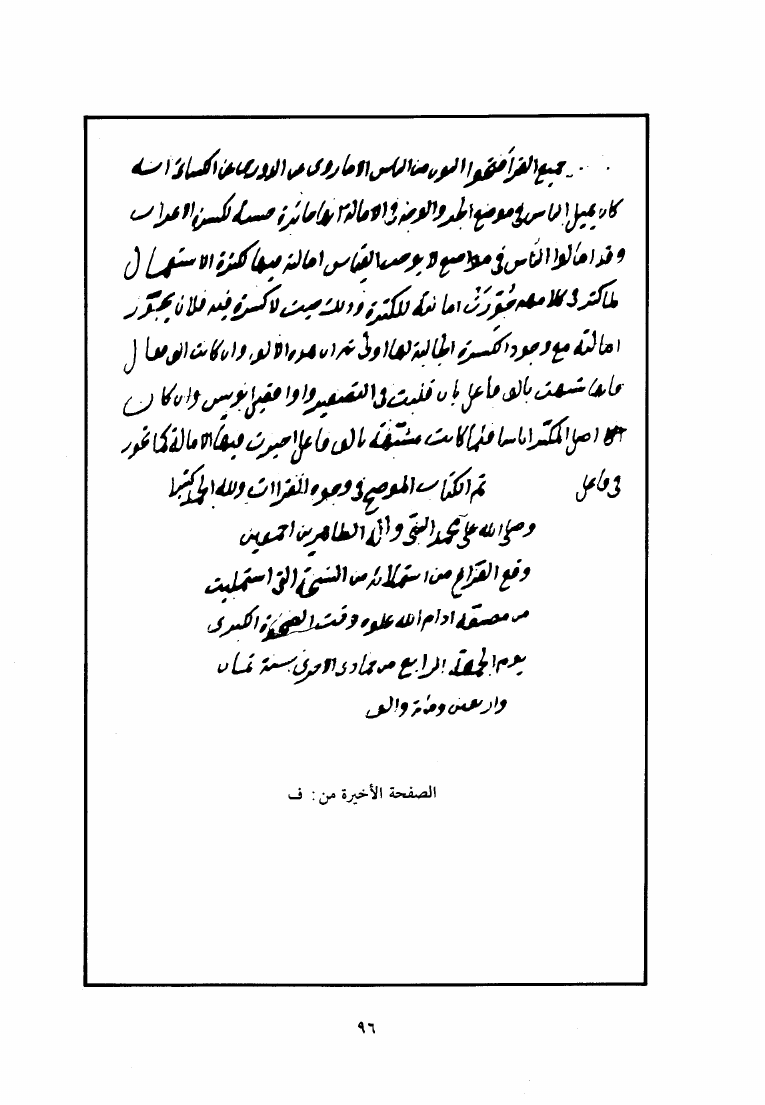 جميع القرأ فتحوا النون من الناس الا ما روى عن الدورى عن الكسائى انه
كان يميل الناس فى موضع الجر والوجه فى الامالة انها جائزة حسنة لكسرة الاعراب
وقد امالوا الناس فى مواضع لا يوجب القياس امالته فيها لكثرة الاستعمال
لما كثر فى كلامهم جُوّزَتْ امالته للكثرة وذلك حيث لا كسرة فيه فلان يجوز
امالته مع وجود الكسرة الجالبة لها اولى ثم ان هذه الالف وان كانت الف فعال
فانها شبهت بالف فاعل بان قلبت فى التصغير واوا فقيل نويس وان كان
اصل المكبر اناسا فلما كانت مشبّهة بالف فاعل اجيزت فيها الامالة كما تجوز
فى فاعل
تم الكتاب الموضح فى وجوه القراات ولله الحمد كثيرا
وصلى الله على محمد النبى وآله الطاهرين اجمعين
وقع الفراغ من استملائه من النسخة التى استمليت
من مصنفه ادام الله علوه وقت الضحوة الكبرى
يوم الجمعة الرابع من جمادى الاخرى سنة ثمان
واربعين ومائة والف
الصفحة الأخيرة من : ف
٩٦